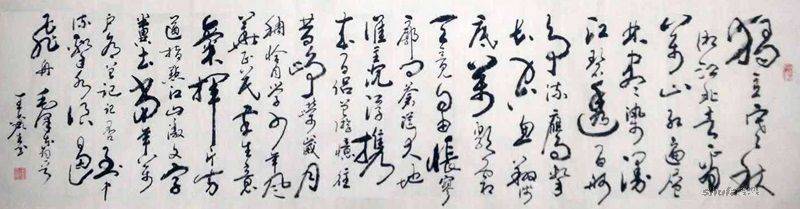 独立寒秋
湘江北去
万山红遍层
林尽染漫
江碧透百舸
争流鹰击
长空鱼翔浅
底万类霜
天竞自由怅寥
廓问苍茫大地
谁主沉浮携
来百侣曾游忆往
昔峥嵘岁月
稠恰同学少年风
华正茂书生意
气挥斥方
遒指点江山激扬文字
粪土当年万
户侯曾记否到中
流击水浪遏
飞舟 毛泽东